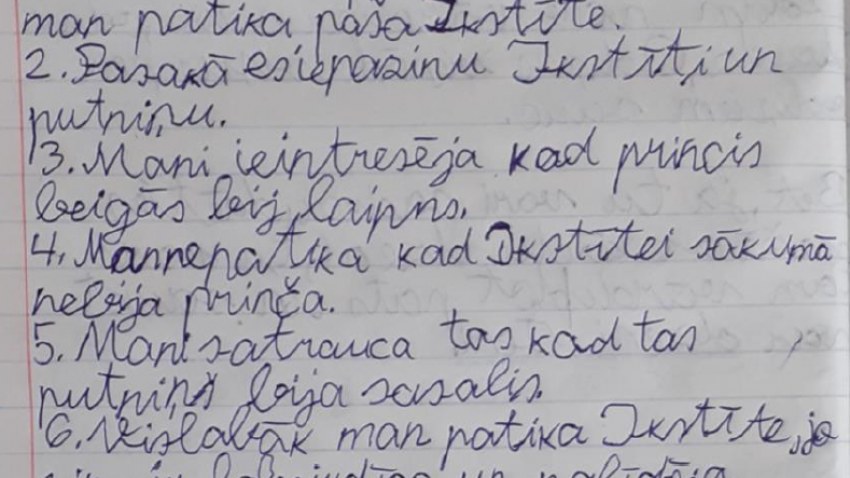 man patika paša Ikstīte.
2. Pasakā es iepazinu Ikstīti un
putniņu.
3. Mani ieintresēja kad princis
beigās bij laipns.
4. Man nepatika kad Ikstītei sākumā
nebija prinča.
5. Mani satrauca tas kad tas
putniņš bija sasalis.
6. Vislabāk man patika Ikstīte, jo
un palīdzēja